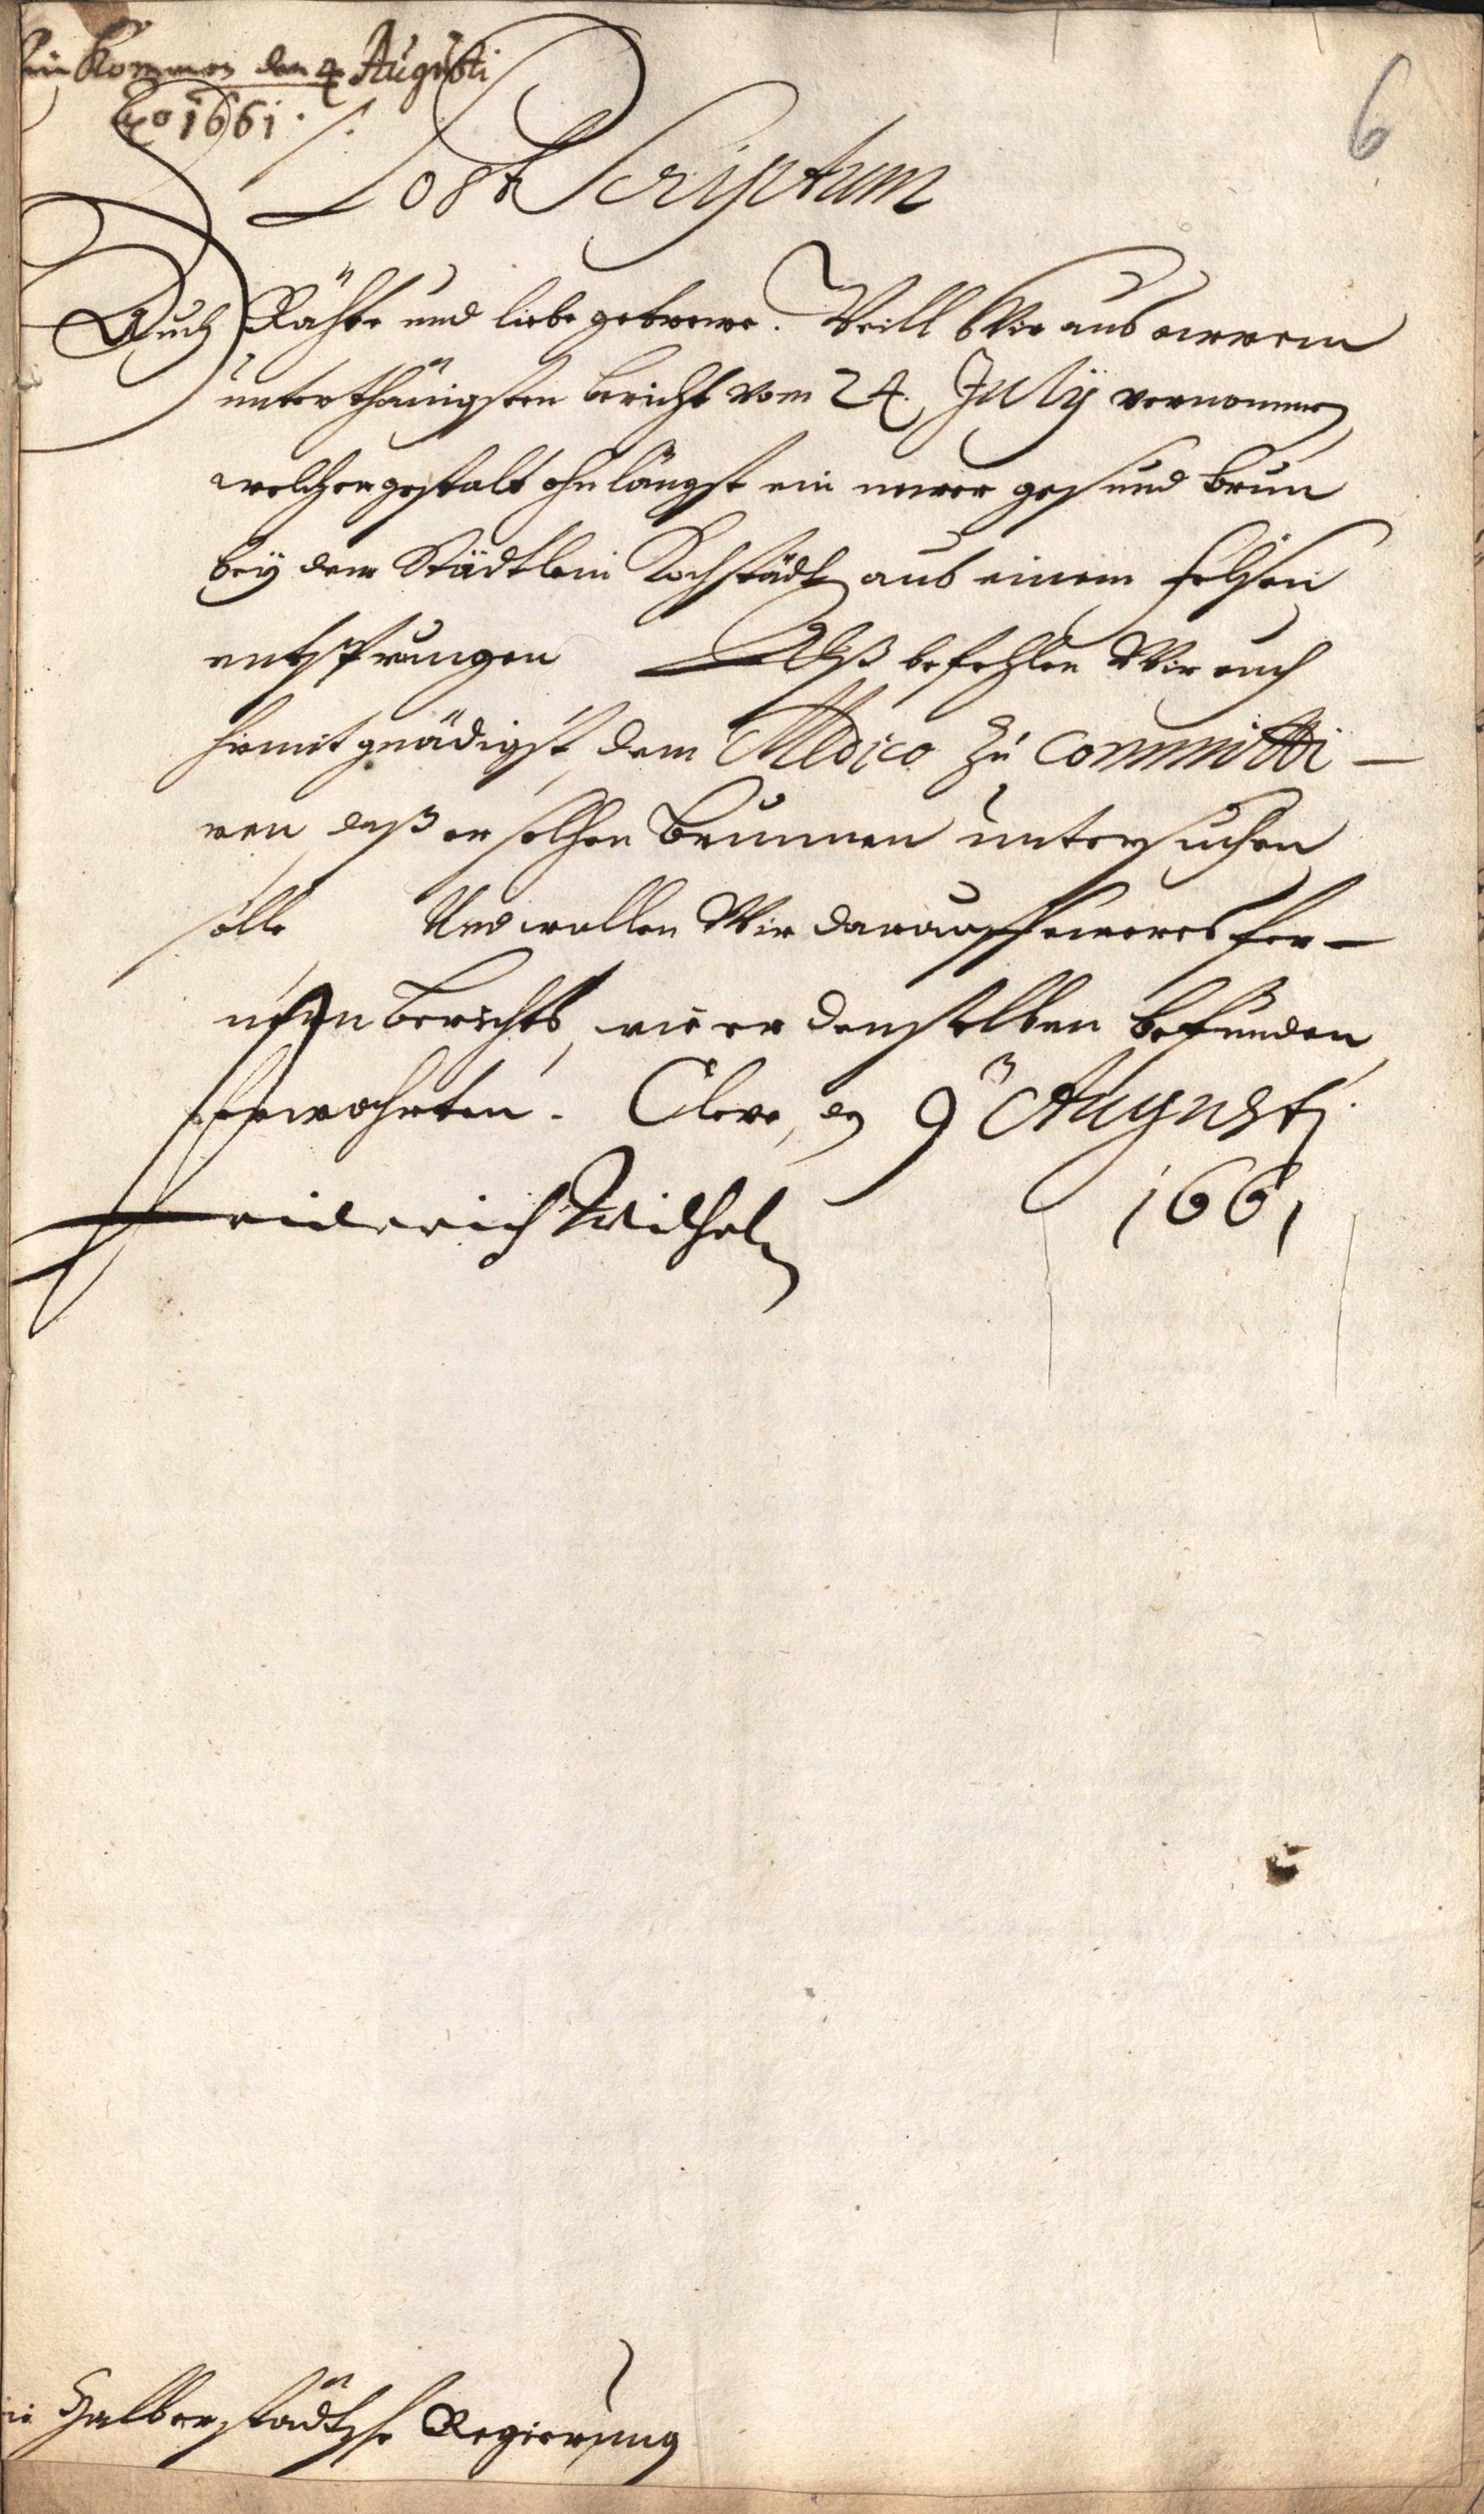 einkommen den 4 Augusti
Ao 1661.
6
Post Scriptum
Auch Rähte und liebe getrewe. Weill Wir aus ewrem
unterthänigsten bericht vom 24. July vernommen
welchergestalt ohnlängst ein newer gesund Brun
bey dem Städtlein Kochstädt aus einem felsen
entsprungen Alß befehlen Wir euch
hiermit gnädigst, dem Medico zu committi-
ren, daß er solchen Brunnen untersuchen
solle Und wollen Wir darauff eweres fer-
nern Berichts, wie er denselben befunden,
erwahrten. Cleve, den 9 Augusti
1661
Friderich Wilhelm
Halberstädtsche Regierung